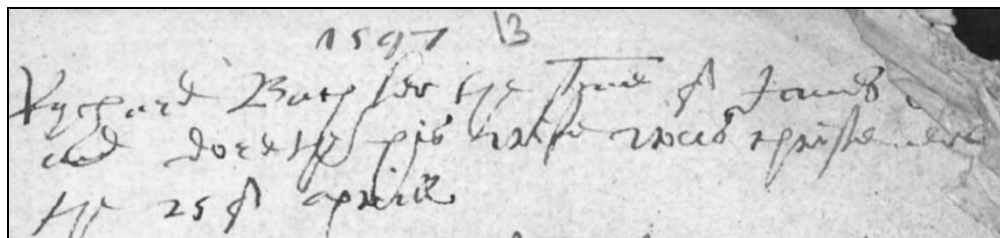 1597 B
Rychard Bach ser the sonne of James
and dorethy his wife was christened
the 25 of aprill